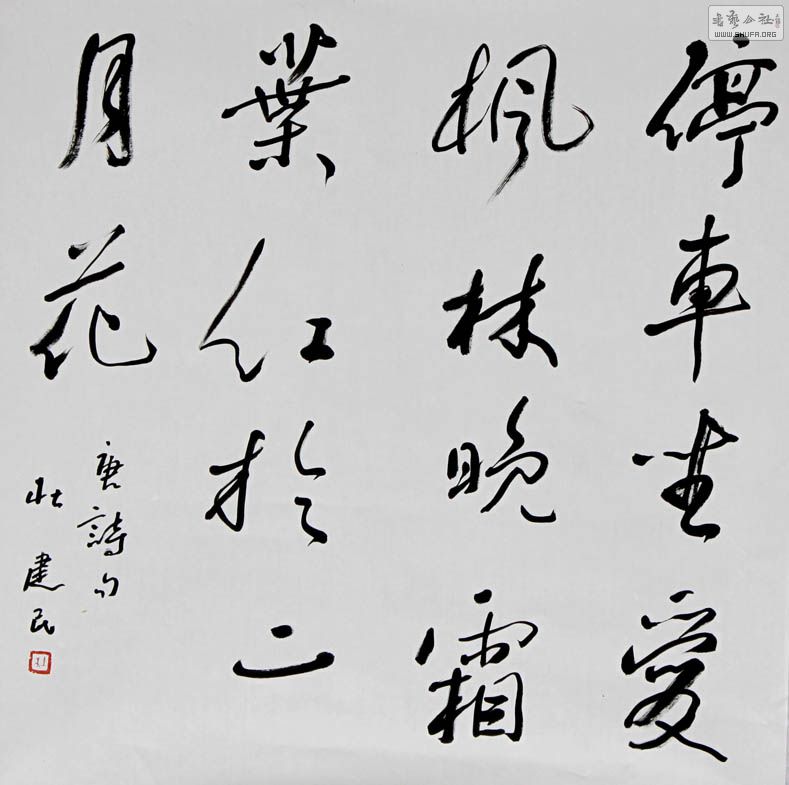 停車坐愛
楓林晚霜
葉紅於二
月花
唐詩句
壯建民
書藝公社
WWW.SHUFA.ORG